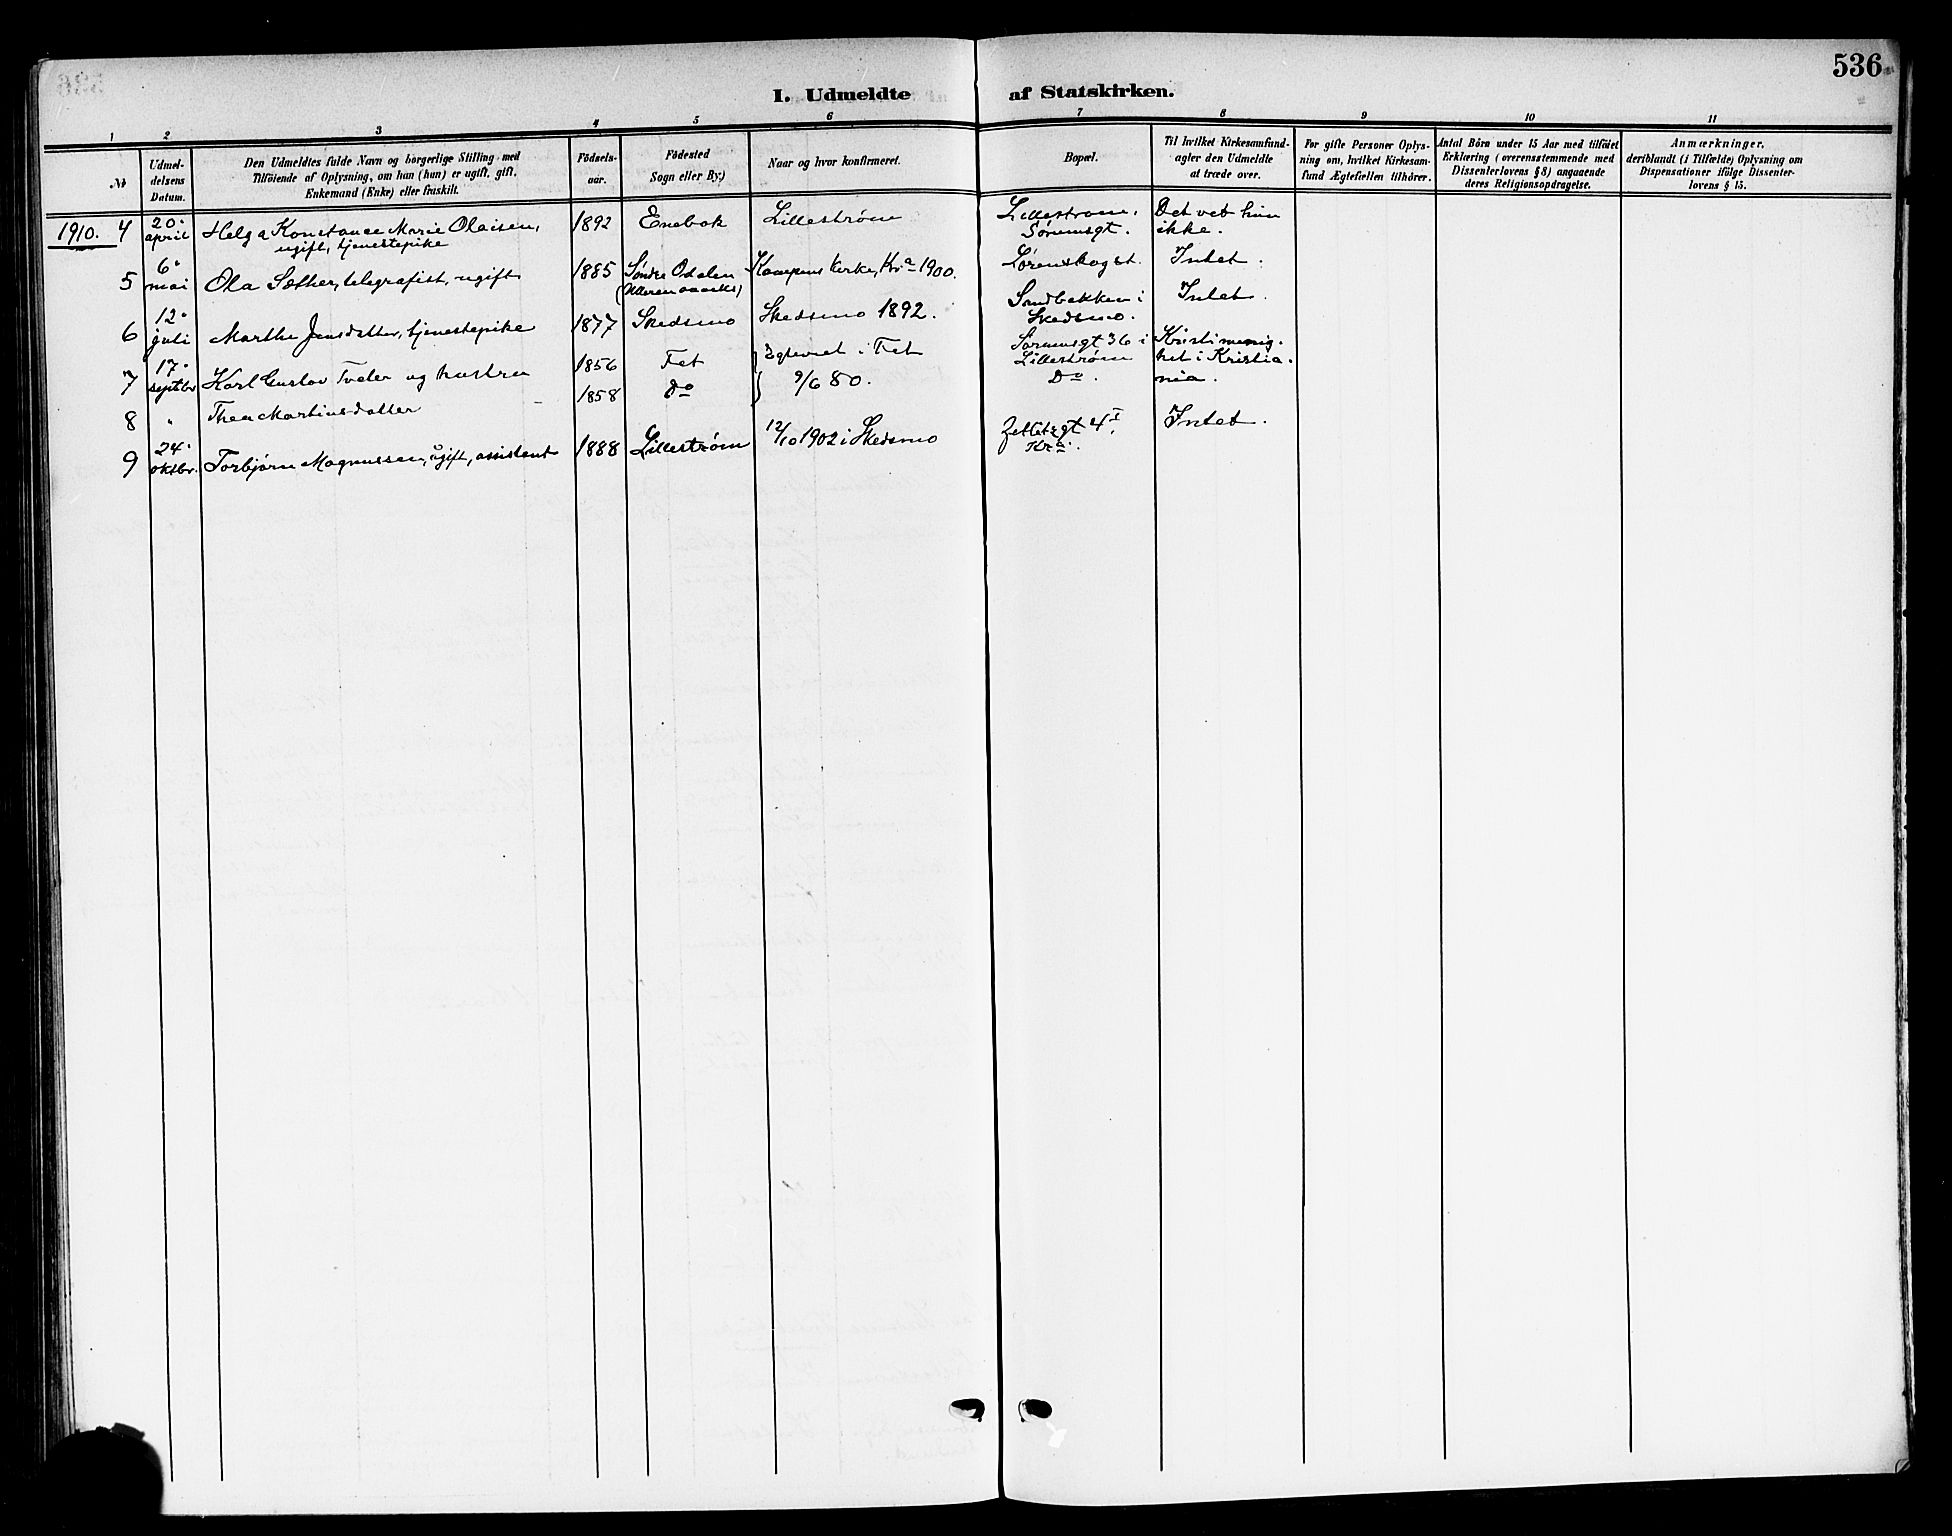 536
I. Udmeldte af Statskirken.
1 2 3 4 5 6 7 8 9 10 11
№
Udmel-
delsens
Datum.
Den Udmeldtes fulde Navn og borgerlige Stilling med
Tilföiende af Oplysning, om han (hun) er ugift, gift,
Enkemand (Enke) eller fraskilt.
Födsels-
aar.
Födested
Sogn eller By.)
Naar og hvor konfirmeret.
Bopæl.
Til hvilket Kirkesamfund-
agter den Udmeldte
at træde over.
For gifte Personer Oplys-
ning om, hvilket Kirkesam-
fund Ægtefællen tilhörer.
Antal Börn under 15 Aar med tilföiet
Erklæring (overensstemmende med
Dissenterlovens § 8) angaaende
deres Religionsopdragelse.
Anmærkninger.
deriblandt (i Tilfælde) Oplysning om
Dispensationer ifölge Dissenter-
lovens § 15.
1910. 4 20. april Helga Konstanse Marie Olaisen,
ugift, tjenestepike
1892 Enebak Lillestrøm Lillestrøm,
Sørumsgt.
Det vet hun
ikke.
5 6. mai Ola Sæther, telegrafist, ugift 1885 Søndre Odalen
Kampens Kirke, Kra 1900. Lørenskogst. Intet.
6 12. juli Marthe Jensdatter, tjenestepike 1877 Skedsmo Skedsmo 1892. Sandbakken i
Skedsmo.
Intet.
7 17. septbr Karl Gustav Tveter og hustru 1856 Fet Egteviet i Fet
9/6 80.
Sørumsgt 36 i
Lillestrøm
Kristi menig-
het i Kristia-
nia.
8 " Thea Martinusdatter 1858 do Do.
9 24. oktbr. Torbjørn Magnussen, ugift, assistent 1888 Lillestrøm 12/10 1902 i Skedsmo 4 I,
Kra.
Intet.